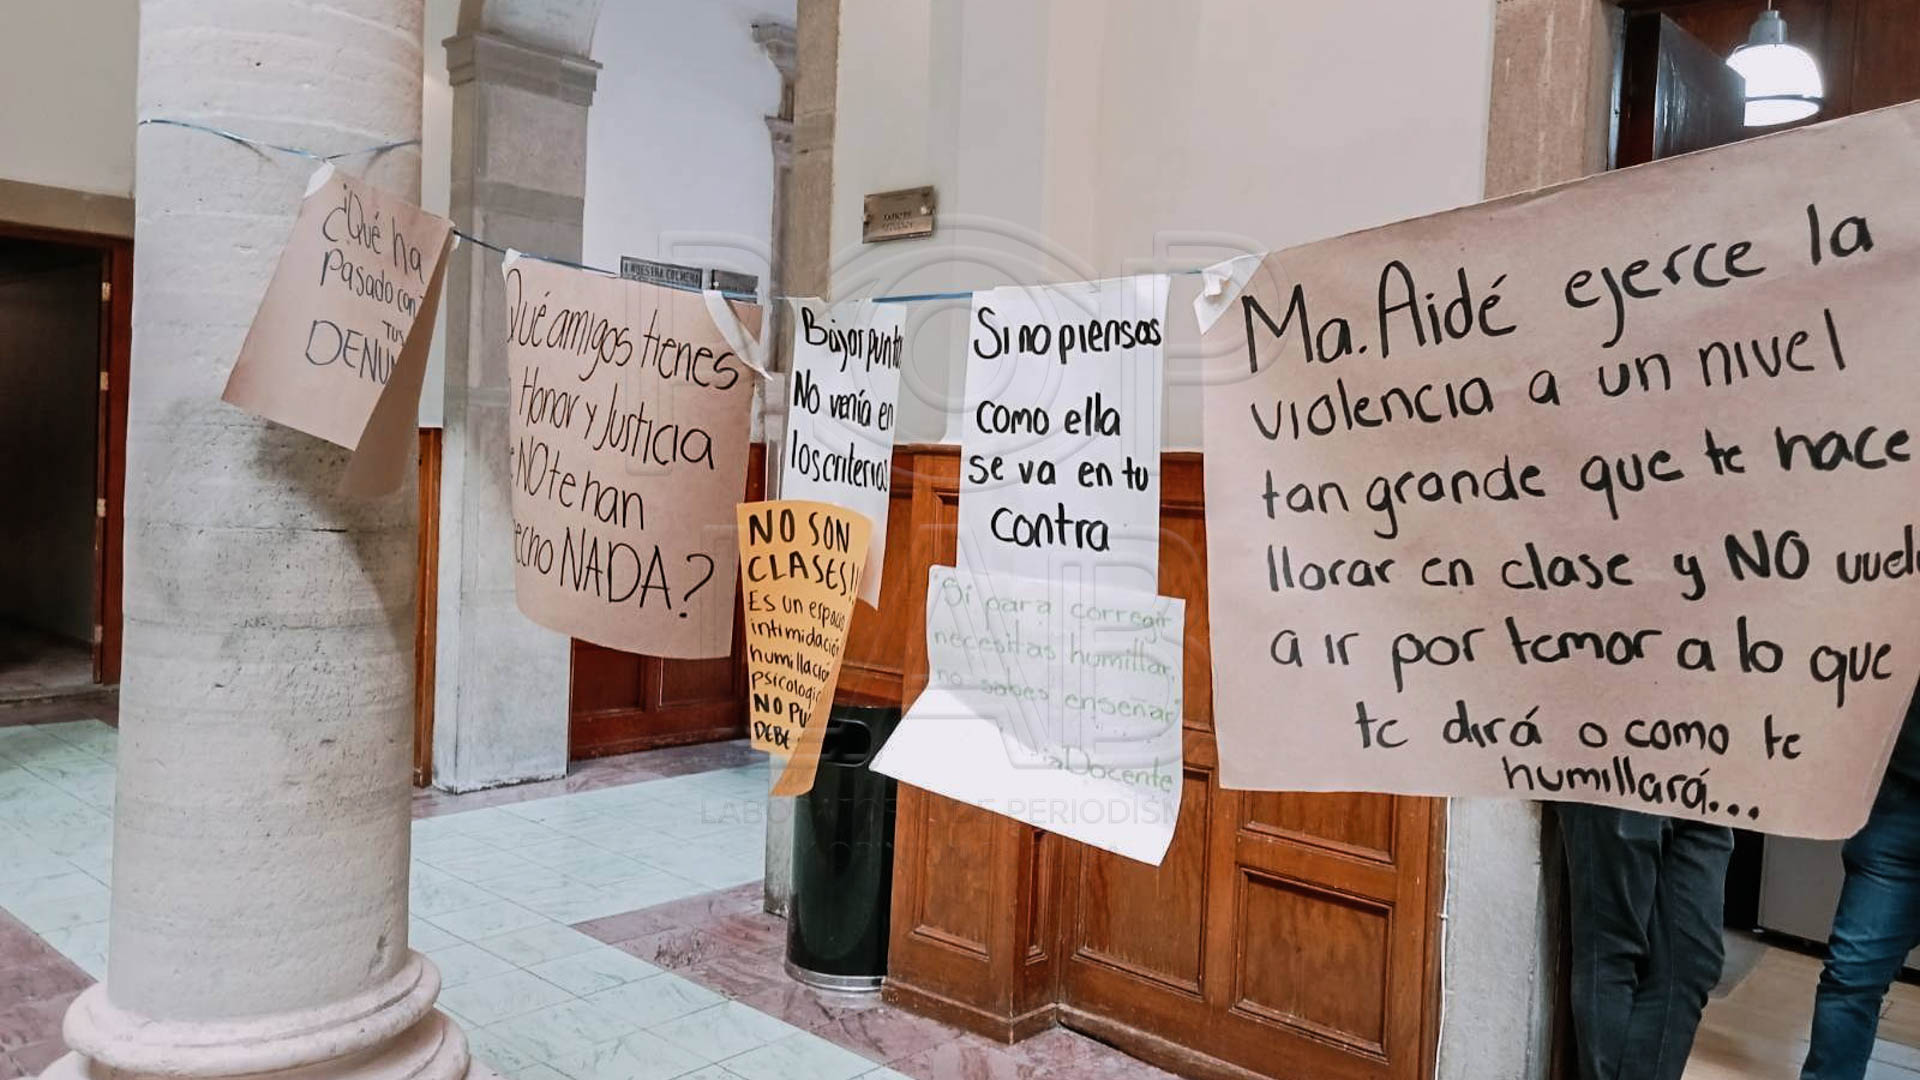 ¿Qué ha
pasado con
TUS
DENUN
Qué amigos tienes
Honor y Justicia
NO te han
echo NADA?
Bajar punto
No venía en
los criterios
NO SON
CLASES!!
ES UN espacio
intimidación
humillación
psicologi
NO PU
DEBE
Si no piensas
como ella
se va en tu
contra
"Si para corregir
necesitas humillar,
no sabes enseñar"
Docente
Ma. Aidé ejerce la
violencia a un nivel
tan grande que te hace
llorar en clase y NO vuel
a ir por temor a lo que
te dirá o como te
humillará...
A NUESTRA COLMENA
POP
LAB
LABORATORIO DE PERIODISMO